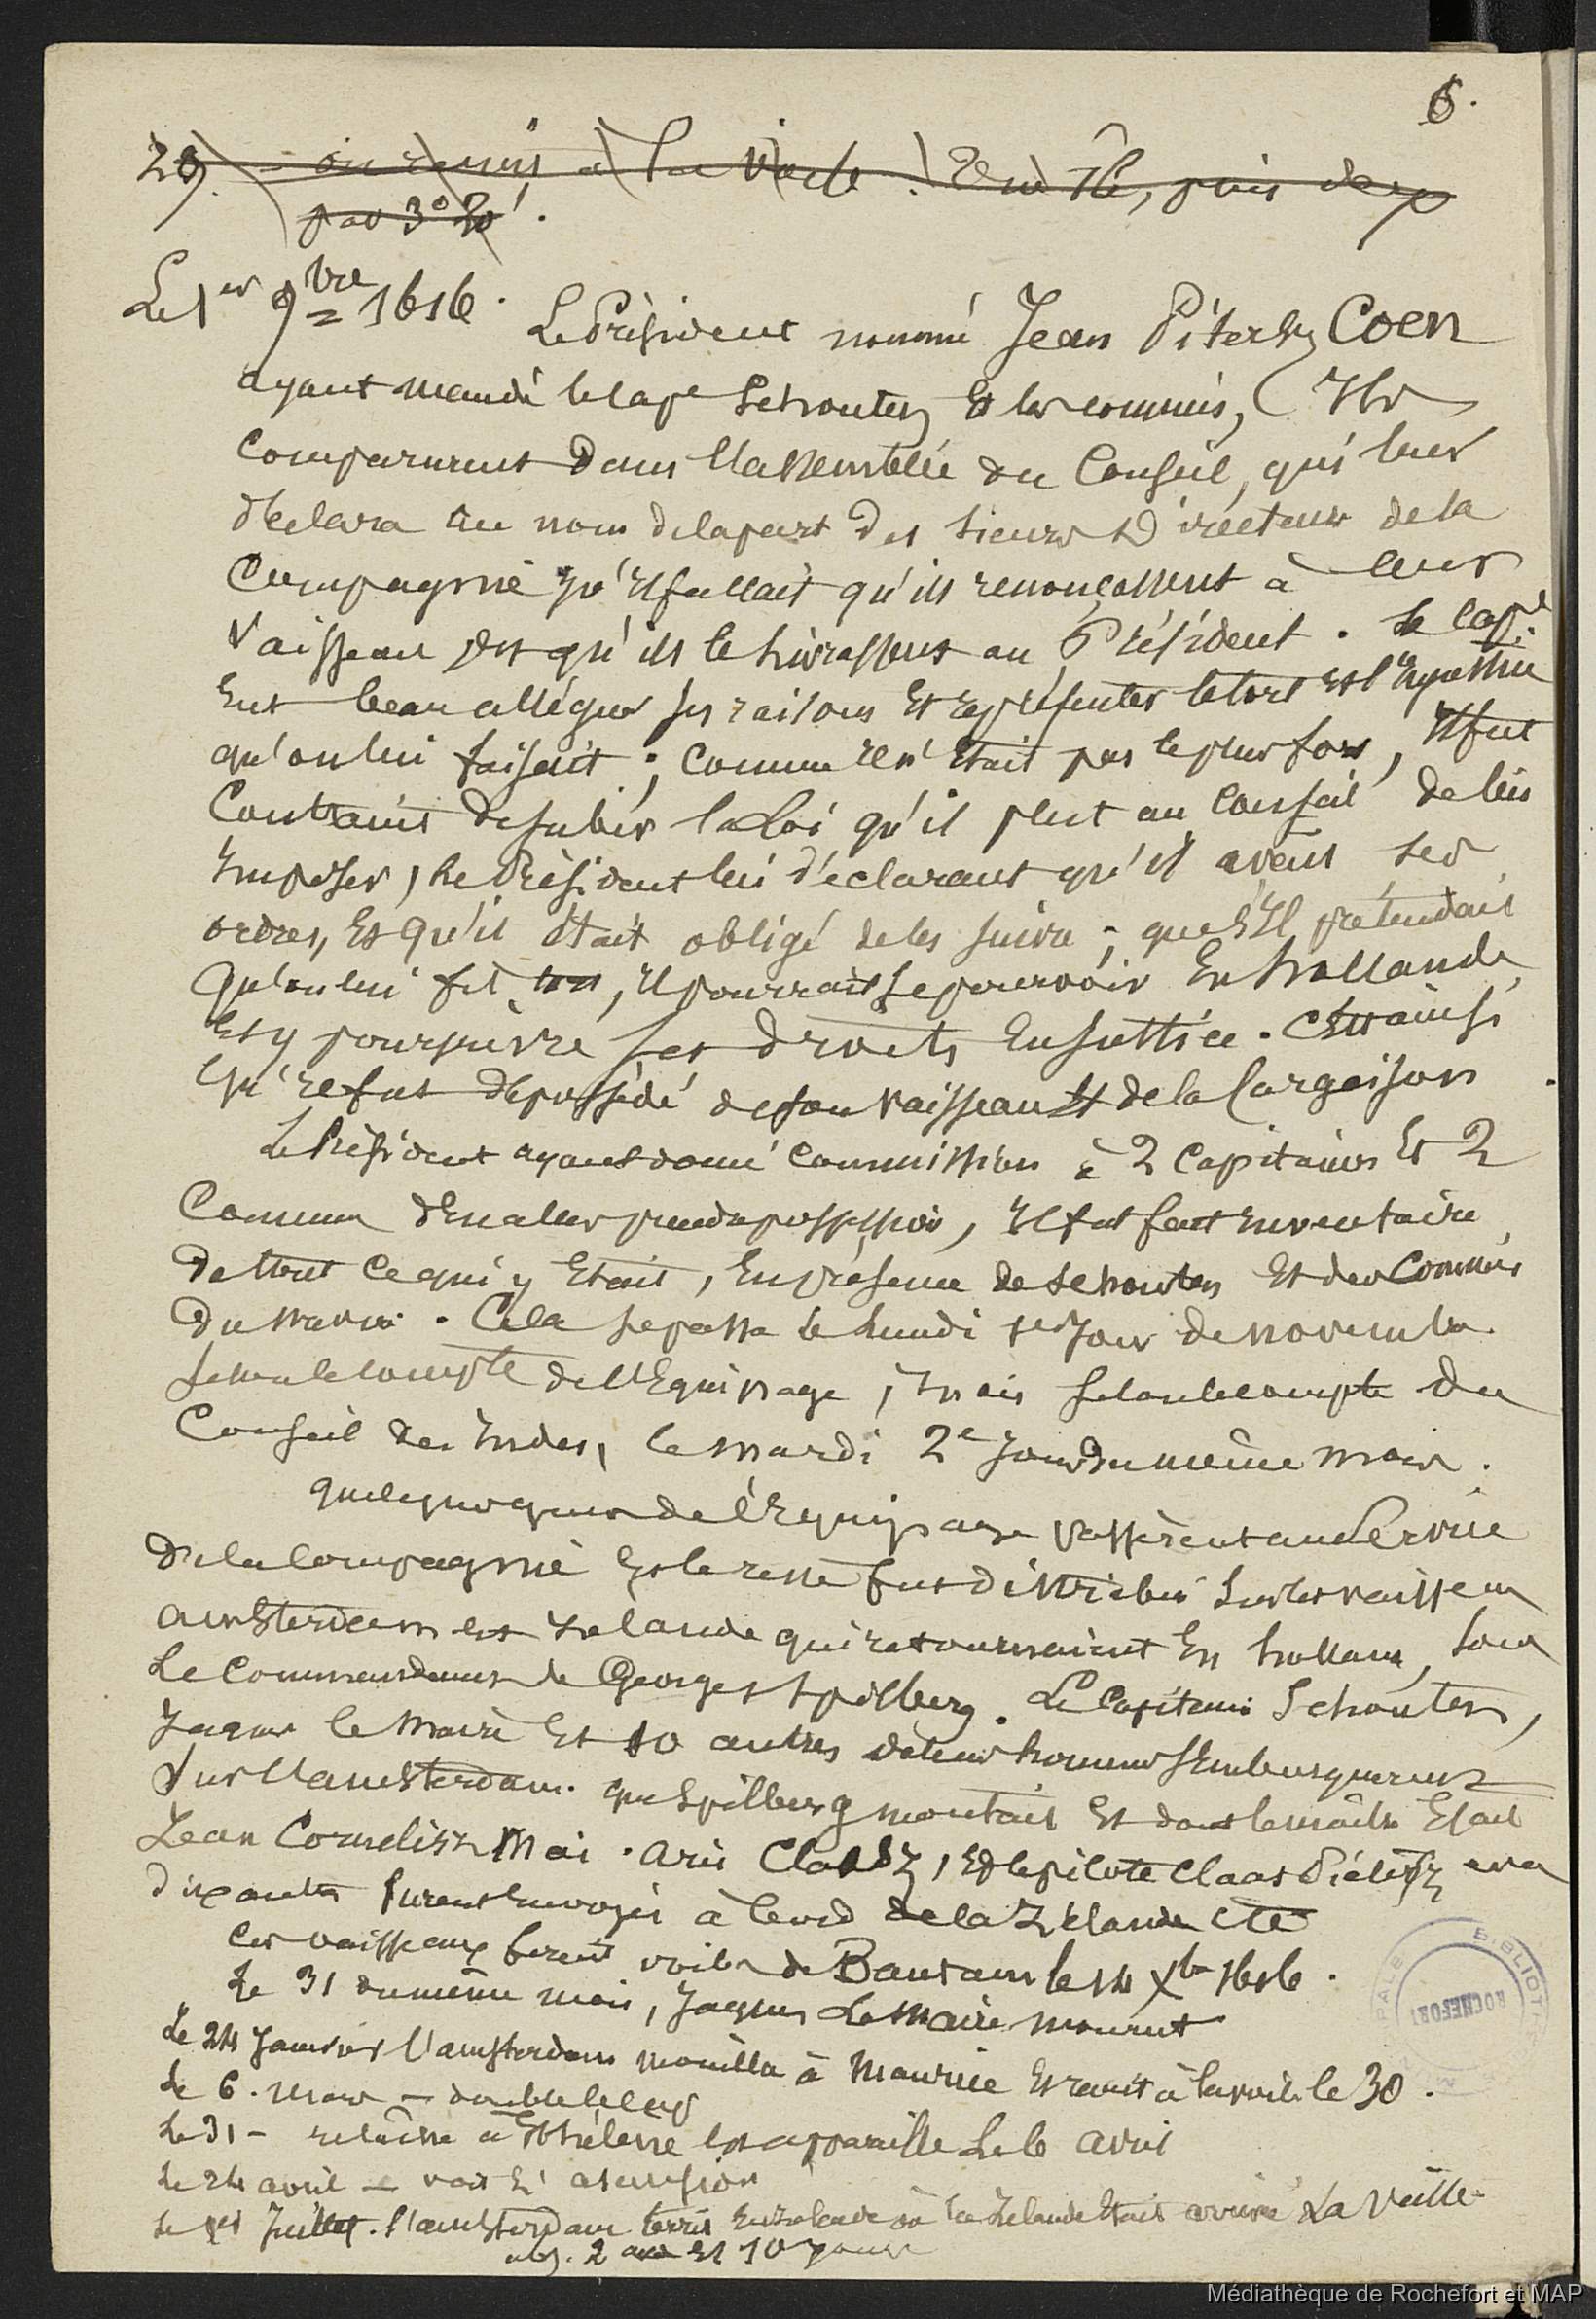 6.
29. on remis à la voile. puis
par 3° 20'.
Le 1er 9bre 1616. Le Président nommé Jean Pitersz Coen
ayant mandé le cape Schouten Et les commis, Ils
comparurent dans l'assemblée du Conseil, qui leur
déclara au nom de la part des sieurs Directeurs de la
Compagnie qu'Il fallait qu'ils renonçassent à leur
Vaisseau Et qu'ils le livrassent au Président. Le cape
Eut beau alléguer ses raisons Et représenter le tort Et l'Injustice
qu'on lui faisait; comme Il n'Etait pas le plus fort, Il fut
Contraint de subir la Loi qu'il plut au Conseil de lui
Imposer, Le Président lui déclarant qu'il avait ses
ordres, Et qu'il Etait obligé de les suivre; que s'Il prétendait
Qu'on lui fit tort, Il pourrait se pourvoir En hollande,
Et y poursuivre ses droits En Justice. C'Est ainsi
qu'Il fut dépossédé de son vaisseau Et de la Cargaison.
Le Président ayant donné commission à 2 capitaines Et 2
Commis d'En aller prendre possession, Il fut fait Inventaire
de tout ce qui y Etait, En présence de Schouten Et des Commis
du navire. Cela se passa le Lundi 1er Jour de novembre
selon le compte de l'Equipage, mais selon le compte du
Conseil des Indes, le mardi 2e Jour du même mois.
Quelques gens de l'Equipage passèrent au Service
de la Compagnie Et le reste fut distribué Sur les vaisseaux
amsterdam Et Zelande qui retournaient En hollande, sous
Le commandement de Georges Spilberg. Le Capitaine Schouten,
Jaques le Maire Et 10 autres de leurs hommes s'Embarquerent
Sur l'amsterdam que Spilberg montait Et dont le maître Etait
Jean Cornelisz Mai. Aris Clabsz, Et le pilote Claas Piétersz avec
dix autres furent Envoyés à bord de la Zélande
Ces vaisseaux firent voile de Bantam le 14 Xbre 1616.
Le 31 du même mois, Jaques Le Maire mourut
Le 24 Janvier l'amsterdam mouilla à Maurice Et remit à la voile le 30.
Le 6. Mars — double le cap
Le 31 — relâche à Ste hélène Et appareille Le 6 avril
Le 24 avril — voit l'ascension
Le 1er Juillet. l'amsterdam territ En Zelande où la Zelande Etait arrivée La Veille
2 ans Et 10 Jours
BIBLIOT
ROCHEFORT
Médiathèque de Rochefort et MAP